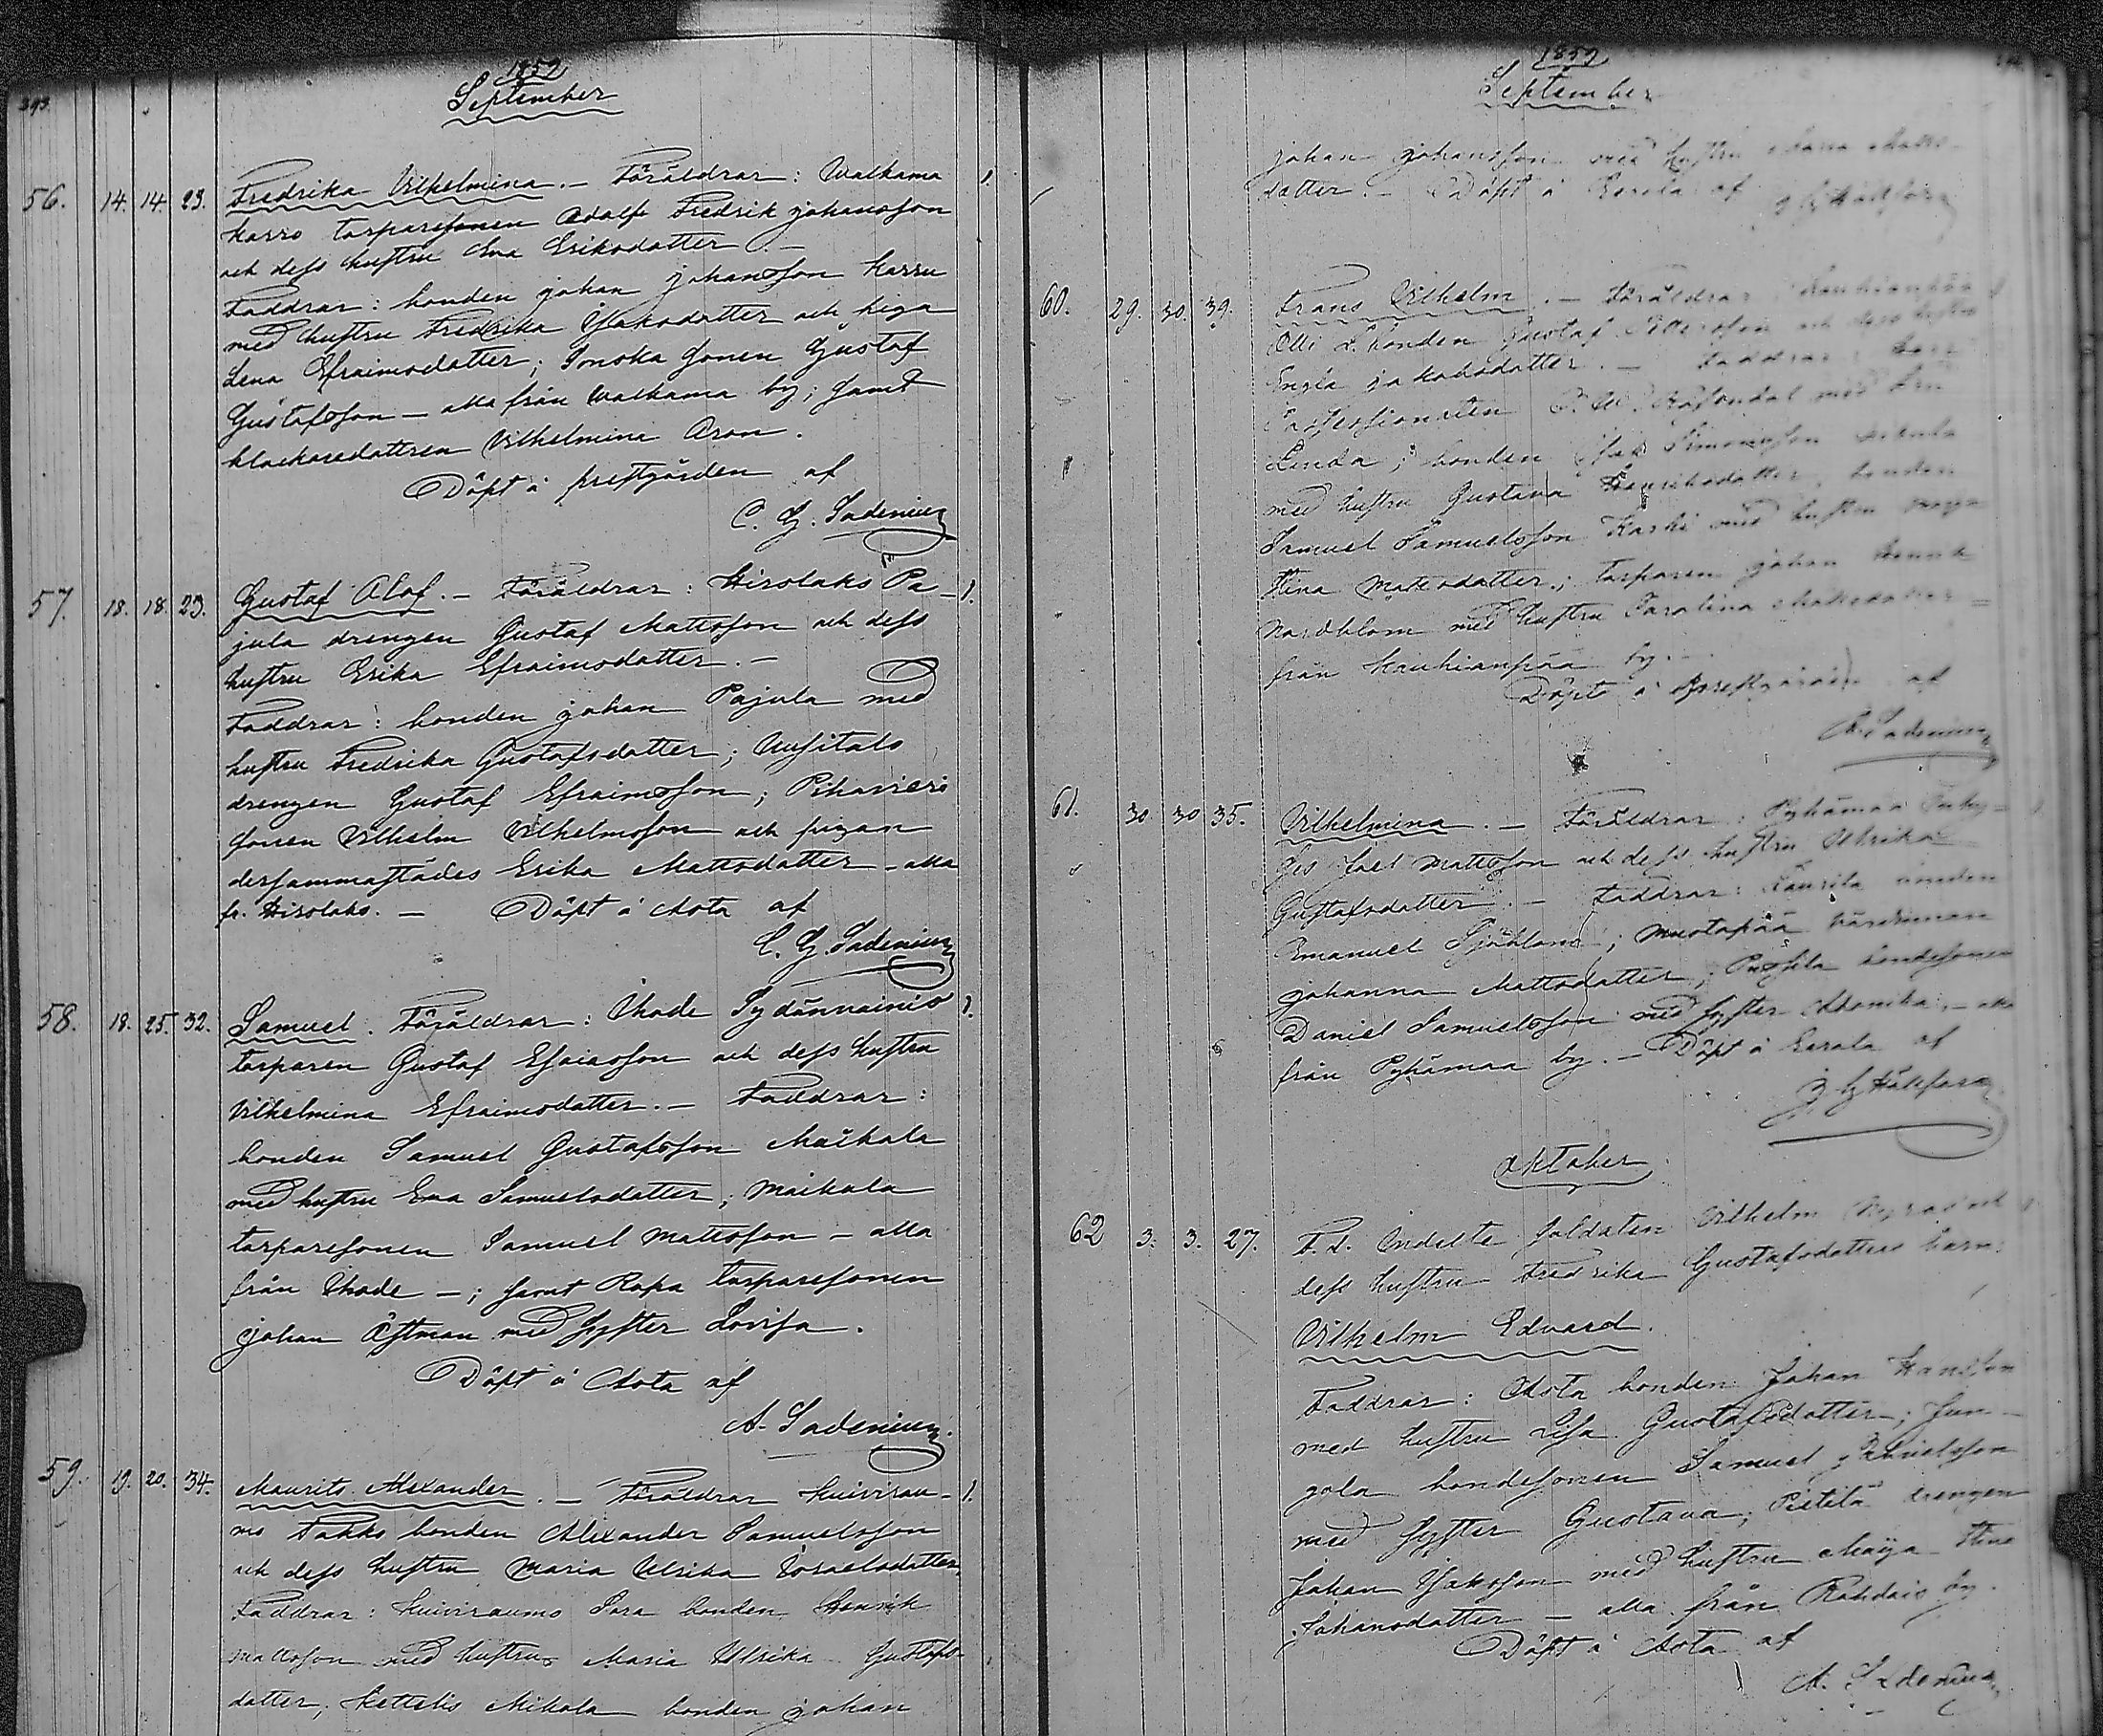 393.
1859
September
56. 14. 14. 23. Fredrika Vilhelmina. – Föräldrar: Walkama 1.
Karro torparesonen Adolf Fredrik Johansson
och dess hustru Eva Eriksdatter. –
Faddrar: bonden Johan Johansson Karru
med hustru Fredrika Isaksdatter och piga
Lena Efraimsdatter; Sonska sonen Gustaf
Gustafsson – alla från Walkama by; samt
klockaredattren Vilhelmina Aron.
Döpt i prestgården af
C. G. Sadenius
57. 18. 18. 23. Gustaf Olof. – Föräldrar: Hirslaks Pa- 1.
jula drengen Gustaf Mattsson och dess
hustru Erika Efraimsdatter. –
Faddrar: bonden Johan Pajula med
hustru Fredrika Gustafsdatter; Uusitalo
drengen Gustaf Efraimsson; Pihavieri
sonen Vilhelm Vilhelmsson och pigan
dersammastädes Erika Mattsdatter – alla
fr. Hirslaks. – Döpt i Aota af
C. G. Sadenius
58. 18. 25. 32. Samuel. Föräldrar: Ihode Sydänvainio 1.
torparen Gustaf Esaiasson och dess hustru
Vilhelmina Efraimsdatter. – Faddrar:
bonden Samuel Gustafsson Maikala
med hustru Eva Samuelsdatter; Maikala
torparesonen Samuel Mattsson – alla
från Ihode –; samt Rapa torparesonen
Johan Östman med syster Lovisa.
Döpt i Aota af
A. Sadenius.
59. 19. 20. 34. Maurits Alexander. – Föräldrar Kuivirau- 1.
mo Takko bonden Alexander Samuelsson
och dess hustru Maria Ulrika Israelsdatter.
Faddrar: Kuiviraumo Sora bonden Henrik
Mattsson med hustru Maria Ulrika Gustafs-
datter, Kettelis Mikola bonden Johan
1859
September
Johan Johansson med hustru Maria Matts-
datter. – Döpt i Eurola af
60. 29. 30. 39. Frans Vilhelm. – Föräldrar: Kauhianpää
Olli L. bonden Gustaf Pettersson och dess hustru
Engla Jakobsdatter. – Faddrar:
Professionisten med fru
Linda; bonden Isak Simonsson
med hustru Gustava Henriksdatter, bonden
Samuel Samuelsson Karhi med hustru Maja
Stina Mattsdatter; torparen Johan Henrik
Nordblom med hustru Carolina Mattsdatter =
från Kauhianpää by. –
Döpt i Prestgården af
A. Sadenius
61. 30. 30 35. Vilhelmina. – Föräldrar: Pyhämaa Inhy-
ses Joel Mattsson och dess hustru Ulrika
Gustafsdatter. – Faddrar: Laurila
Emanuel Sjöblom; Mustapää värdinnan
Johanna Mattsdatter; Puosila bondesonen
Daniel Samuelsson med syster Monika, – alla
från Pyhämaa by. – Döpt i Eurola af
Oktober
62 3. 3. 27. F. d. Indelte soldaten Vilhelm och
dess hustru Fredrika Gustafsdatters barn:
Vilhelm Edvard.
Faddrar: Aota bonden Johan Hansson
med hustru Lisa Gustafsdatter; Jun-
jola bondesonen Samuel Samuelsson
med syster Gustava; Pietilä drengen
Johan Isaksson med hustru Maija Stina
Johansdatter – alla från Rohdais by.
Döpt i Aota af
A. Sadenius